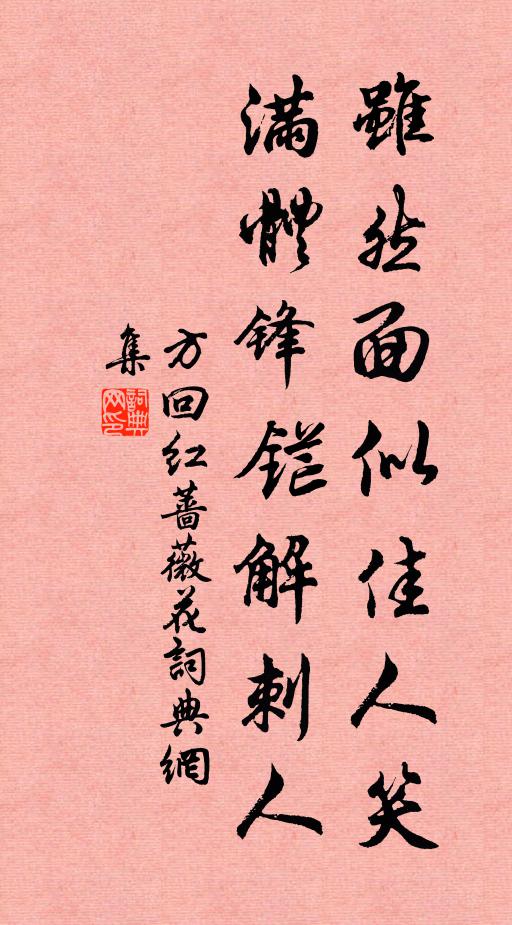 雖然面似佳人笑
滿體鋒鋩解刺人
方回紅薔薇花詞典網
集
詞典
网印